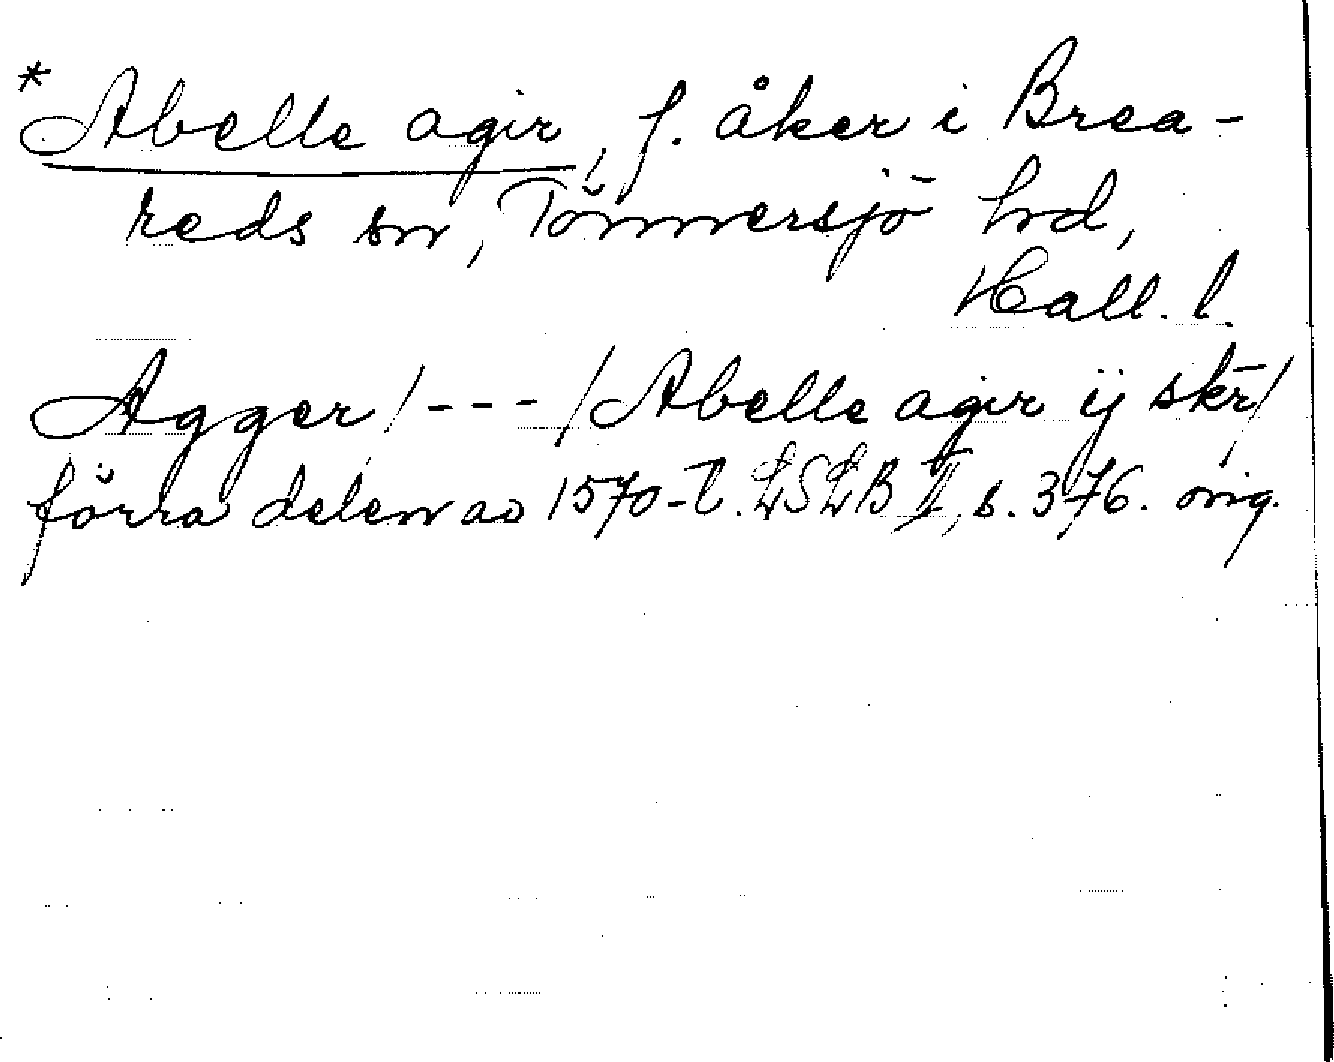 * Abelle agir, f. åker i Brea-
reds sn, Tönnersjö hd,
Hall. l.
Agger /---/ Abelle agir ij skr/
förra delen av 1570-t. LSLB II, s. 376. orig.